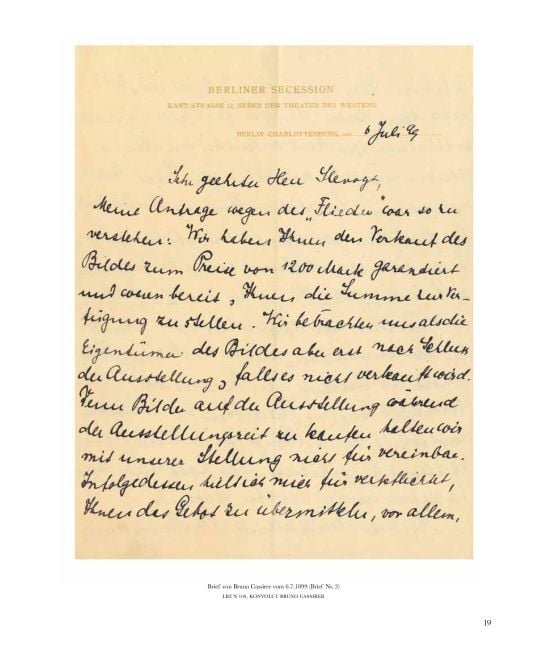 BERLINER SECESSION
KANT-STRASSE 12, NEBEN DER THEATER DES WESTENS.
BERLIN-CHARLOTTENBURG, DEN 6 Juli 99
Sehr geehrter Herr Slevogt,
Meine Anfrage wegen des „Flieder" war so zu
verstehen: Wir haben Ihnen den Verkauf des
Bildes zum Preise von 1200 Mark garantiert
und waren bereit, Ihnen die Summe zur Ver-
fügung zu stellen. Wir betrachten uns als die
Eigentümer des Bildes aber erst nach Schluss
der Ausstellung, falls es nicht verkauft wird.
Denn Bilder auf der Ausstellung während
der Ausstellungszeit zu kaufen halten wir
mit unserer Stellung nicht für vereinbar.
Infolgedessen hielt ich mich für verpflichtet,
Ihnen das Gebot zu übermitteln, vor allem,
Brief von Bruno Cassirer vom 6.7.1899 (Brief Nr. 3)
LBZ N 100, KONVOLUT BRUNO CASSIRER
19